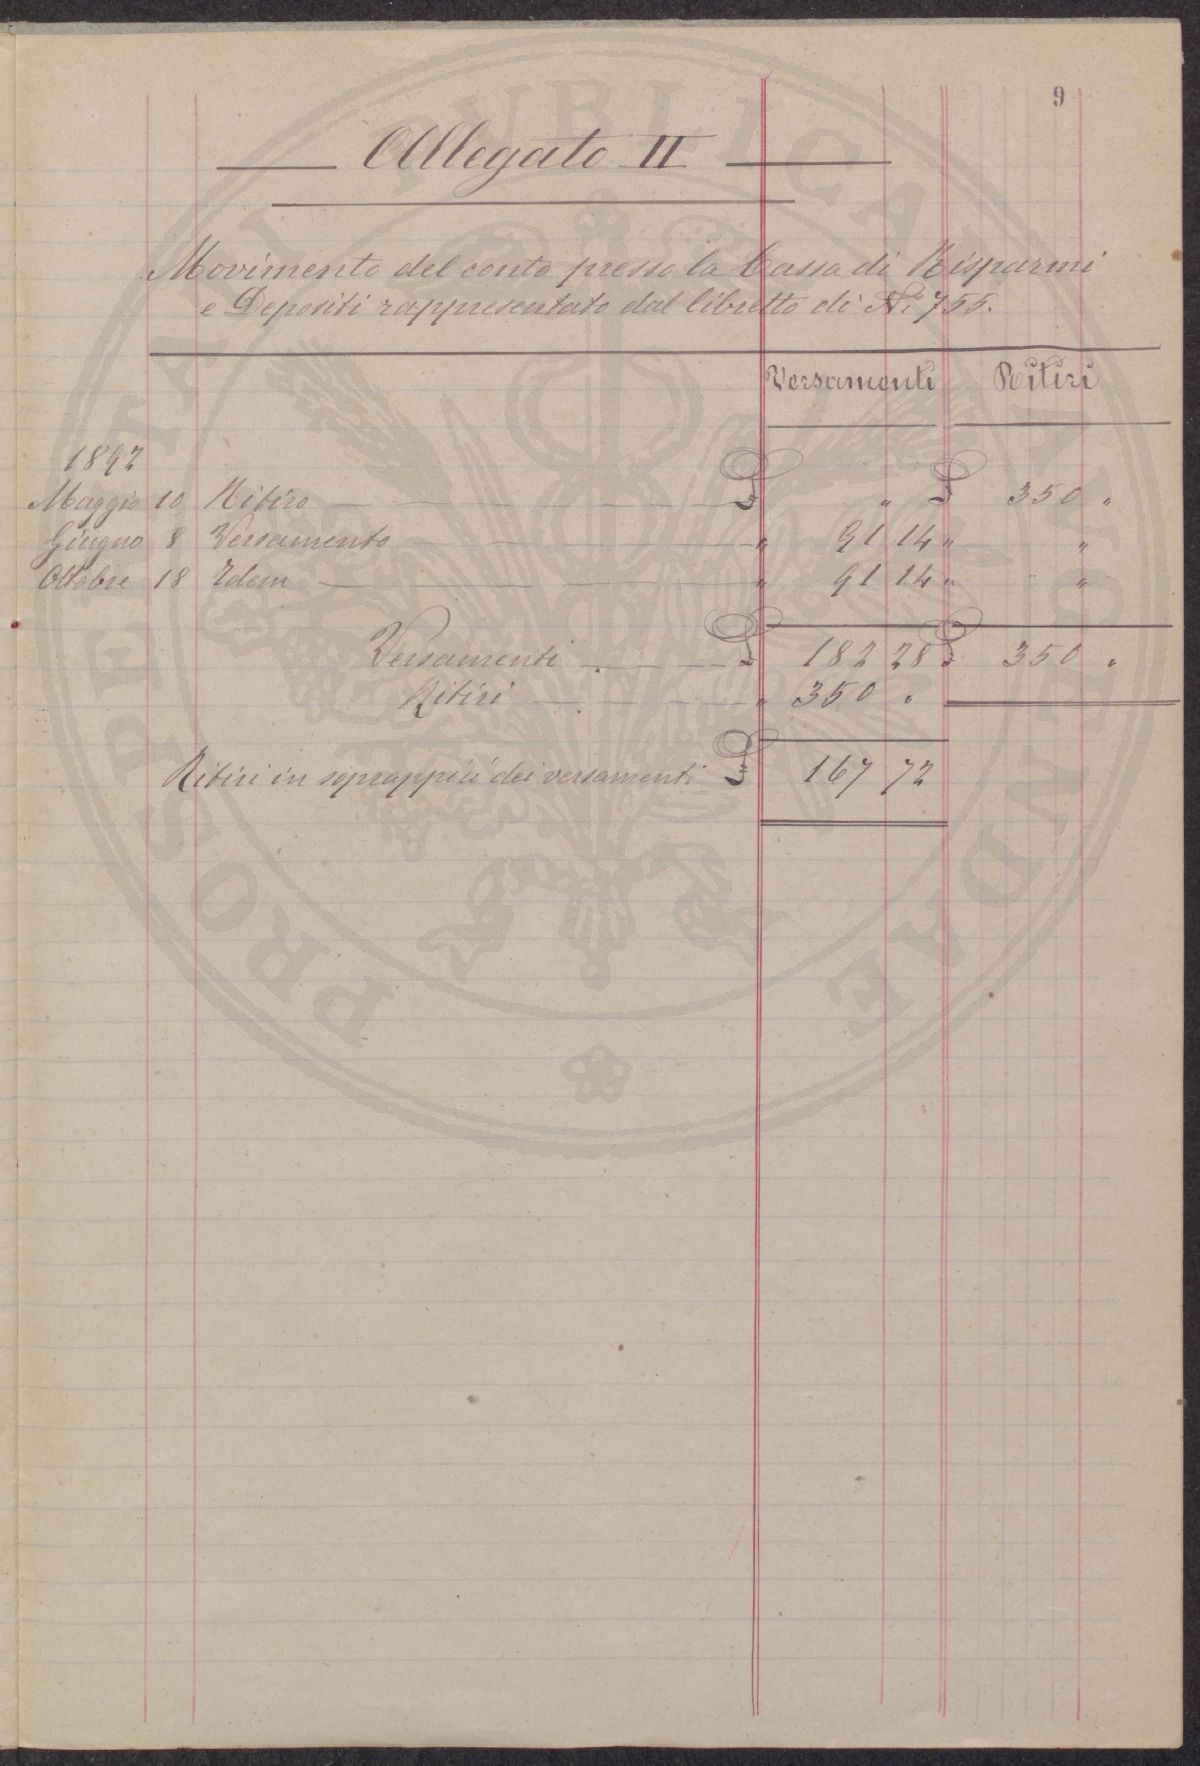 9
Allegato II
Movimento del conto presso la Cassa di Risparmi
e Depositi rappresentato dal libretto di N. 755.
Versamenti Ritiri
1892
Maggio 10 Ritiro £ " £ 350 "
Giugno 8 Versamento " 91 14 " "
Ottobre 18 Idem " 91 14 " "
Versamenti £ 182 28 £ 350 "
Ritiri " 350 "
Ritiri in soprappiù dei versamenti £ 167 72
PROSPERITATI PUBLICAE AUGENDAE